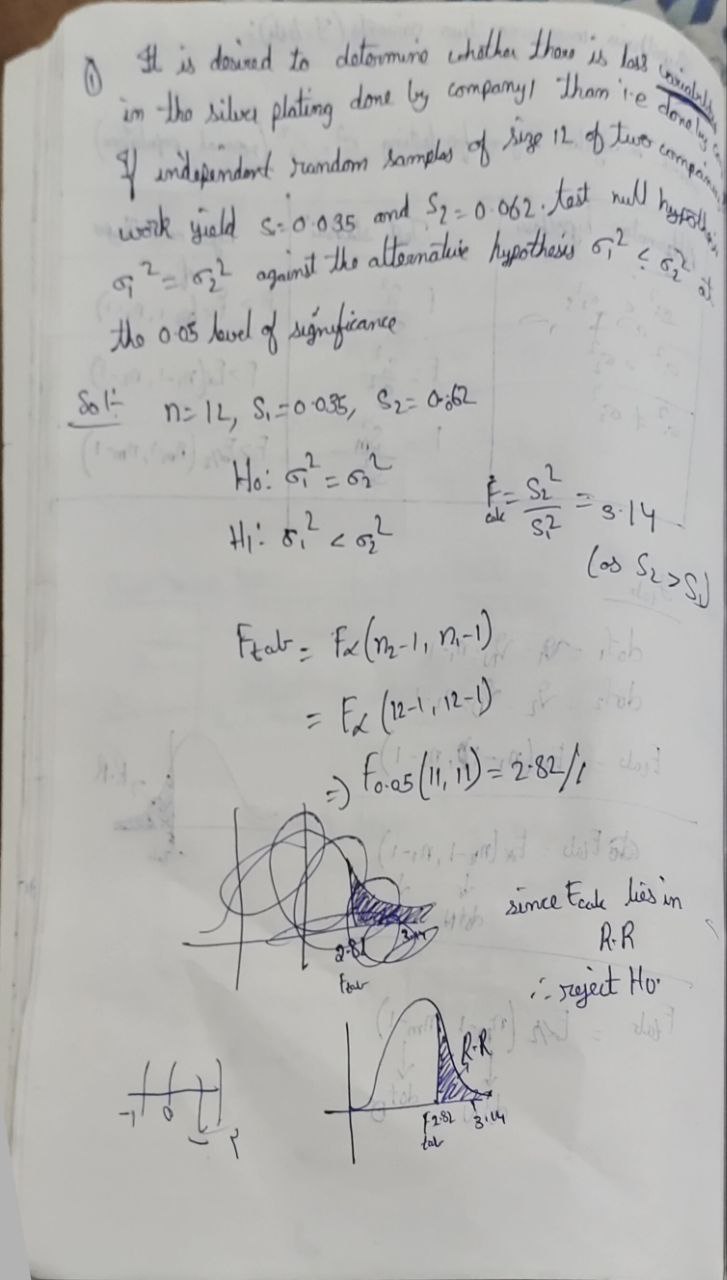 ① It is desired to determine whether there is less variability
in the silver plating done by company 1 than i.e done by
If independent random samples of size 12 of two companies
work yield s = 0.035 and S₂ = 0.062. test null hypothesis
σ₁² = σ₂² against the alternative hypothesis σ₁² < σ₂² at
the 0.05 level of significance
Sol:- n = 12, S₁ = 0.035, S₂ = 0.062
H₀: σ₁² = σ₂²
H₁: σ₁² < σ₂²
F calc = S₂² / S₁² = 3.14
(as S₂ > S₁)
Ftab = Fα (n₂-1, n₁-1)
= Fα (12-1, 12-1)
=> F0.05 (11, 11) = 2.82//
2.82 3.14
Ftab
since Fcalc lies in
R.R
∴ reject H₀.
R-R
F 2.82 3.14
tab
-1 0